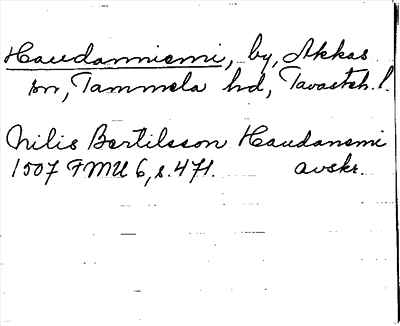 Haudanniemi, by, Akkas
sn, Tammela hd, Tavasteh. l.
Nilis Bertilsson Haudanemi
1507 FMU 6, s. 471. avskr.